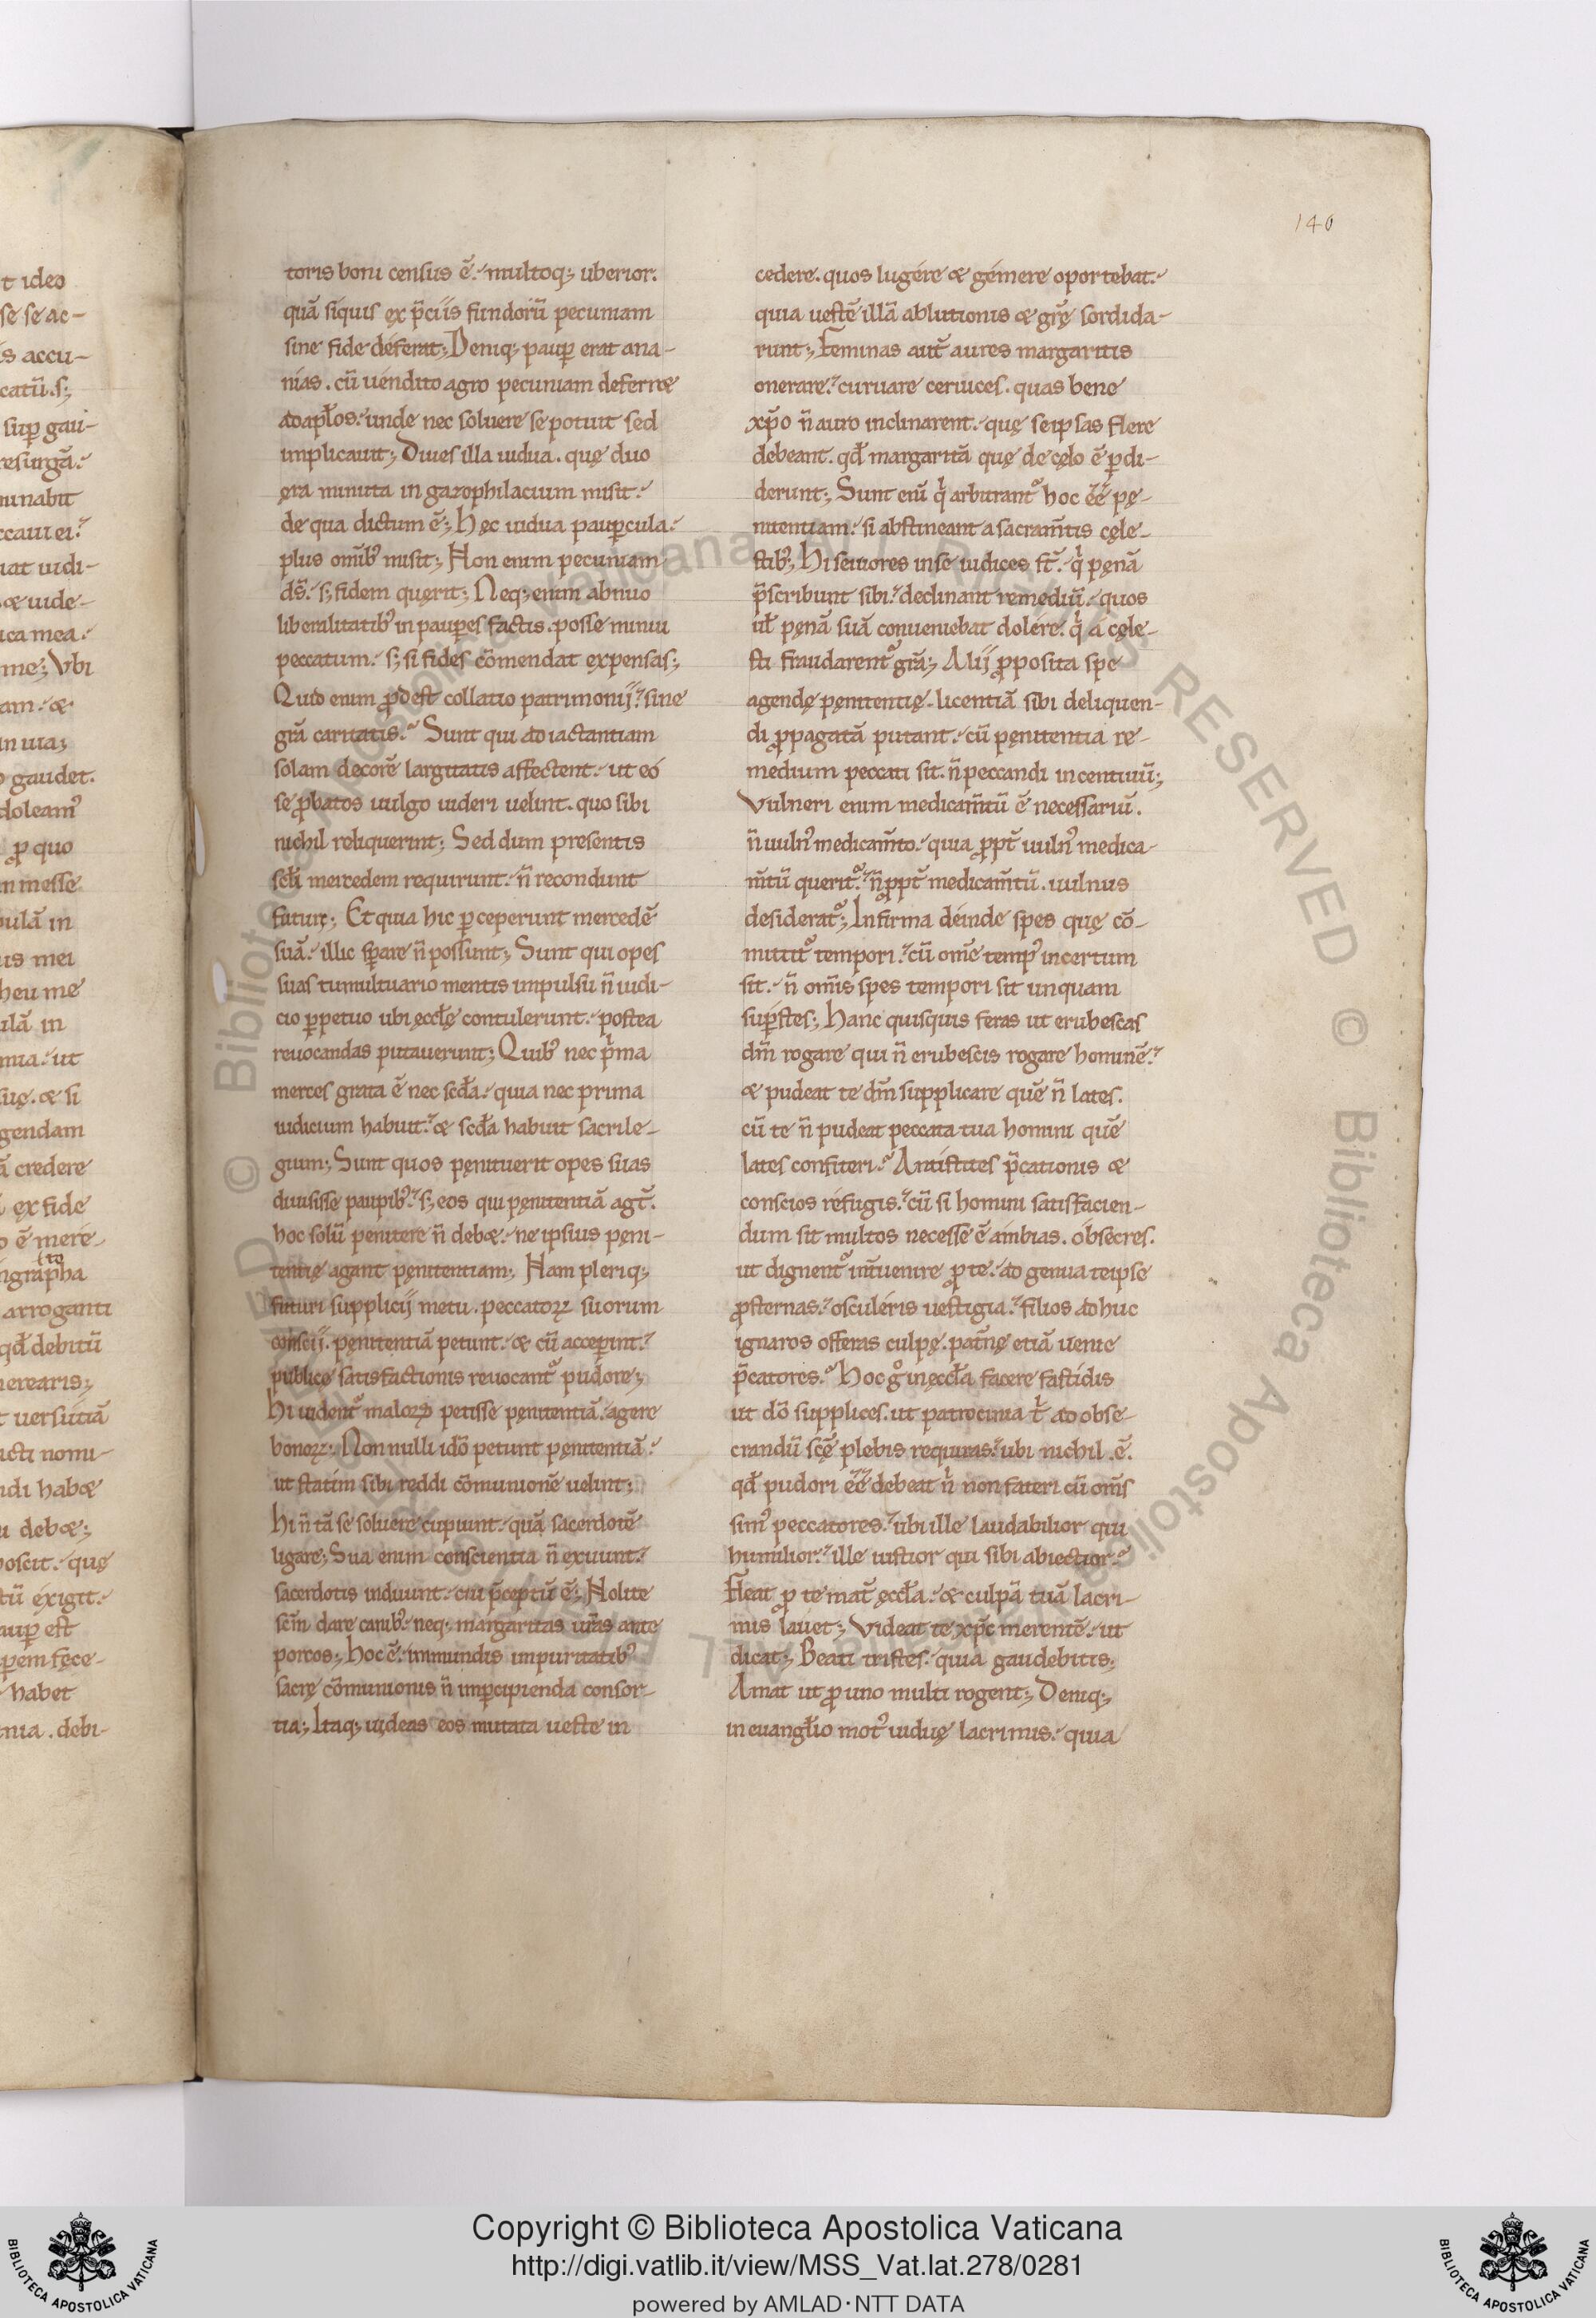 t ideo
se se ac-
is accu-
catū. s;
sup gau-
resurgā.
munabit
ccaui ei.
uat uidi-
& uide-
ica mea.
me; Vbi
am. &
in uia;
gaudet.
doleam᾽
ꝓ quo
m messe
pulā in
us mei
heu me
ulā in
mia. ut
suę. & si
gendam
ā credere
ex fide
o ē mere-
to
ngrapha
arroganti
qđ debitū
merearis;
t uersutiā
icti nomi-
ndi hab&
u deb&;
poscit. quę
tū exigit.
aup est
pem fece-
habet
nia. debi-
140
toris boni census ē. multoq; uberior.
quā siquis ex p̄ciis fundorū pecuniam
sine fide deferat; Deniq; paup erat ana-
nias. cū uendito agro pecuniam deferr&
ad apłos. unde nec soluere se potuit sed
implicauit; Diues illa uidua. quę duo
ęra minuta in gazophilacium misit.
de qua dictum ē; Hęc uidua paupcula.
plus omīb᾽ misit; Non enim pecuniam
dš. s; fidem querit; Neq; enim abnuo
liberalitatib᾽ in paupes factis. posse minui
peccatum. s; si fides cōmendat expensas;
Quid enim ꝓdest collatio patrimonij. sine
grā caritatis. Sunt qui ad iactantiam
solam decorē largitatis affectent. ut eo
se ꝓbatos uulgo uideri uelint. quo sibi
nichil reliquerint; Sed dum presentis
scłi mercedem requirunt. n̄ recondunt
futurę; Et quia hic pceperunt mercedē
suā. illic spare n̄ possunt; Sunt qui opes
suas tumultuario mentis impulsu n̄ iudi-
cio ppetuo ubi ęccłę contulerunt. postea
reuocandas putauerunt; Quib᾽ nec pͥma
merces grata ē nec scđa. quia nec prima
iudicium habuit. & scđa habuit sacrile-
gium; Sunt quos penituerit opes suas
diuisisse paupib᾽. s; eos qui penitentiā agt̄.
hoc solū penitere n̄ deb&. ne ipsius peni-
tentię agant penitentiam; Nam pleriq;
futuri supplicij metu. peccatoꝝ suorum
conscij. penitentiā petunt. & cū acceperint.
publicę satisfactionis reuocant᾽ pudore;
Hi uident᾽ maloꝝ petisse penitentiā. agere
bonoꝝ; Non nulli idō petunt penitentiā.
ut statim sibi reddi cōmunionē uelint;
Hi n̄ tā se soluere cupiunt. quā sacerdotē
ligare; Sua enim conscientia n̄ exuunt.
sacerdotis induunt. cui p̄ceptū ē; Nolite
scm̄ dare canib᾽. neq; margaritas ur̄as ante
porcos; hoc ē. immundis impuritatib᾽
sacrę cōmunionis n̄ impcipienda consor-
tia; Itaq; uideas eos mutata ueste in
cedere. quos lugere & gemere oportebat.
quia uestē illā ablutionis & gr̄ę sordida-
runt; Feminas aut̄ aures margaritis
onerare. curuare ceruices. quas bene
xp̄o n̄ auro inclinarent. quę seipsas flere
debeant. qđ margaritā quę de cęlo ē pdi-
derunt; Sunt enī qͥ arbitrant᾽ hoc ēē pę-
nitentiam. si abstineant a sacram̄tis cęle-
stib᾽; Hi seuiores in se iudices st̄. qͥ penā
p̄scribunt sibi. declinant remediū. quos
uł penā suā conueniebat dolere. qͥ a cęle-
sti fraudarent᾽ grā; Alij ꝓposita spe
agendę penitentię. licentiā sibi deliquen-
di ꝓpagatā putant. cū penitentia re-
medium peccati sit. n̄ peccandi incentiuū;
Vulneri enim medicam̄tū ē necessariū.
n̄ uuln᾽ medicam̄to. quia ꝓpt̄ uuln᾽ medica-
m̄tū querit᾽. n̄ ꝓpt̄ medicam̄tū. uulnus
desiderat᾽; Infirma deinde spes quę cō-
mittit᾽ tempori. cū om̄e temp᾽ incertum
sit. n̄ om̄is spes tempori sit unquam
suprstes; hanc quisquis feras ut erubescas
dm̄ rogare qui n̄ erubescis rogare hominē.
& pudeat te dm̄ supplicare quē n̄ lates.
cū te n̄ pudeat peccata tua homini quē
lates confiteri. Antistites p̄cationis &
conscios refugis. cū si homini satisfacien-
dum sit multos necesse ē ambias. obsecres.
ut dignent᾽ int̄uenire ꝓ te. ad genua teipse
ꝓsternas. osculeris uestigia. filios adhuc
ignaros offeras culpę. pat̄nę etiā uenie
p̄catores. Hoc gͦ in ęccła facere fastidis
ut dō supplices. ut patrocinia tͥ ad obse-
crandū sc̄ę plebis requiras. ubi nichil. ē.
qđ pudori ēē debeat nͥ non fateri cū oms̄
sim᾽ peccatores. ubi ille laudabilior qui
humilior. ille iustior qui sibi abiectior.
Fleat ꝓ te mat̄ ęccła. & culpā tuā lacri-
mis lauet; Videat te xp̄c merentē. ut
dicat; Beati tristes. quia gaudebitis;
Amat ut ꝓ uno multi rogent; Deniq;
in euangłio mot᾽ uiduę lacrimis. quia
© Biblioteca Apostolica Vaticana ALL RIGHTS RESERVED © Biblioteca Apostolica Vaticana ALL RIGHTS RESERVED
BIBLIOTECA APOSTOLICA VATICANA
Copyright © Biblioteca Apostolica Vaticana
http://digi.vatlib.it/view/MSS_Vat.lat.278/0281
powered by AMLAD·NTT DATA
BIBLIOTECA APOSTOLICA VATICANA